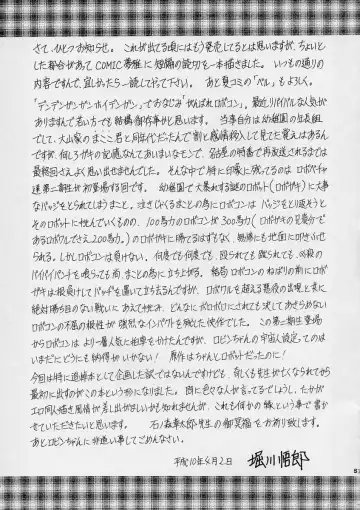 さて、ひとつお知らせ。これが出てる頃にはもう発売してるとは思いますが、ちょいと
した都合があってCOMIC夢雅に短編の読切を一本描きました。いつもの通りの
内容ですんで、宜しかったら一読してやって下さい。あと夏コミの「ベル」もよろしく。
「デンデンゼンゼンホイデンガン」でおなじみ「がんばれロボコン」、最近リバイバルな人気が
ありますんで若い方でも結構御存知かと思います。当事自分は幼稚園の出来組
で、大山家のまこと君と同年代だったんで割と感情移入して見てた覚えはあるん
ですが、何しろガキの記憶なんてあいまいなモンで、名古屋の時番で再放送されるまでは
最終回さえよく思い出せませんでした。そんな中で特に印象に残ってるのはロボパー
達第二期生が初登場する回です。幼稚園で大暴れする謎のロボット(ロボガキ)に大事
なバッジをとられてしまうまこと。まさしくとるまことの為にロボコンはバッジをとり返そうと
そのロボットに挑んでいくものの、100馬力のロボコンが300馬力(ロボガキの兄貴分で
あるロボワルでさえ200馬力。)のロボガキに勝てるはずもなく、無惨にも地面に叩きふせら
れる。しかしロボコンは負けない。何度でも何度でも、殴られても蹴られても、必殺の
パイパイパンチを喰らっても尚、まことの為に立ち上がる。結局ロボコンのねばりの前にロボ
ガキは根負けしてバッヂを返して立ち去るんですが、ロボワルを超える悪役の出現と共に
絶対勝ち目のない戦いにあえて挑み、どんなにボロボロにされても決してあきらめない
ロボコンの不屈の根性が強烈なインパクトを残した快作でした。この第二期生登場
からロボコンはより一層人気に拍車をかけたんですが、ロビンちゃんの宇宙人設定ってのは
いまだにどうにも納得がいかない! 原作はちゃんとロボットだったのに!
今回は特に追悼本として企画した訳ではないんですけども、奇しくも先生が亡くなられてから
最初に出すのがこの本という形になりました。問に色々な人が言ってるでしょうし、たかが
エロ同人描き風情が差し出がましいかも知れませんが、これも何かの縁という事で書か
せていただきたいと思います。 石ノ森章太郎先生の御冥福をお祈り致します。
あとロビンちゃんに非道い事してごめんなさい。
平成10年4月2日 堀川悟郎